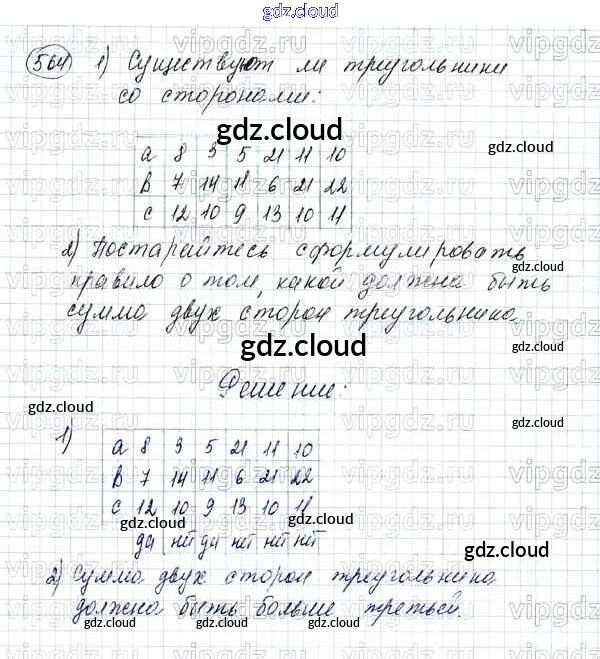 gdz.cloud
564 1) Существуют ли треугольники
со сторонами:
gdz.cloud
a 8 3 5 21 11 10
gdz.cloud
B 7 14 11 6 21 22
c 12 10 9 13 10 11
2) Постарайтесь сформулировать
правило о том, какой должна быть
gdz.cloud
сумма двух сторон треугольника
gdz.cloud
Решение:
gdz.cloud
gdz.cloud
1)
a 8 3 5 21 11 10
B 7 14 11 6 21 22
c 12 10 9 13 10 11
gdz.cloud gdz.cloud
да нет да нет нет нет
gdz.cloud
2) Сумма двух сторон треугольника
должна быть больше третьей.
gdz.cloud gdz.cloud
gdz.cloud